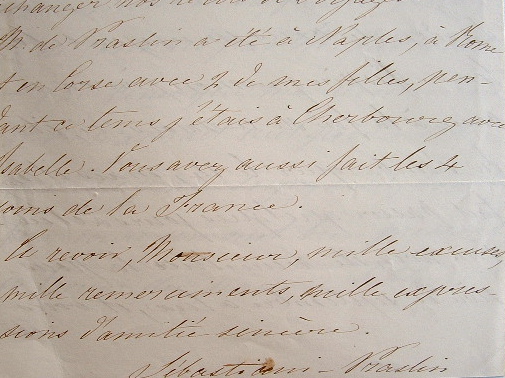 échanger nos récits de voyages
M. de Praslin a été à Naples, à Rome
et en Corse avec 2 de mes filles, pen-
dant ce tems j'étais à Cherbourg avec
Isabelle. Vous avez aussi fait les 4
coins de la France.
Au revoir, Monsieur, mille excuses,
mille remerciments, mille expres-
sions d'amitié sincère.
Sébastiani-Praslin